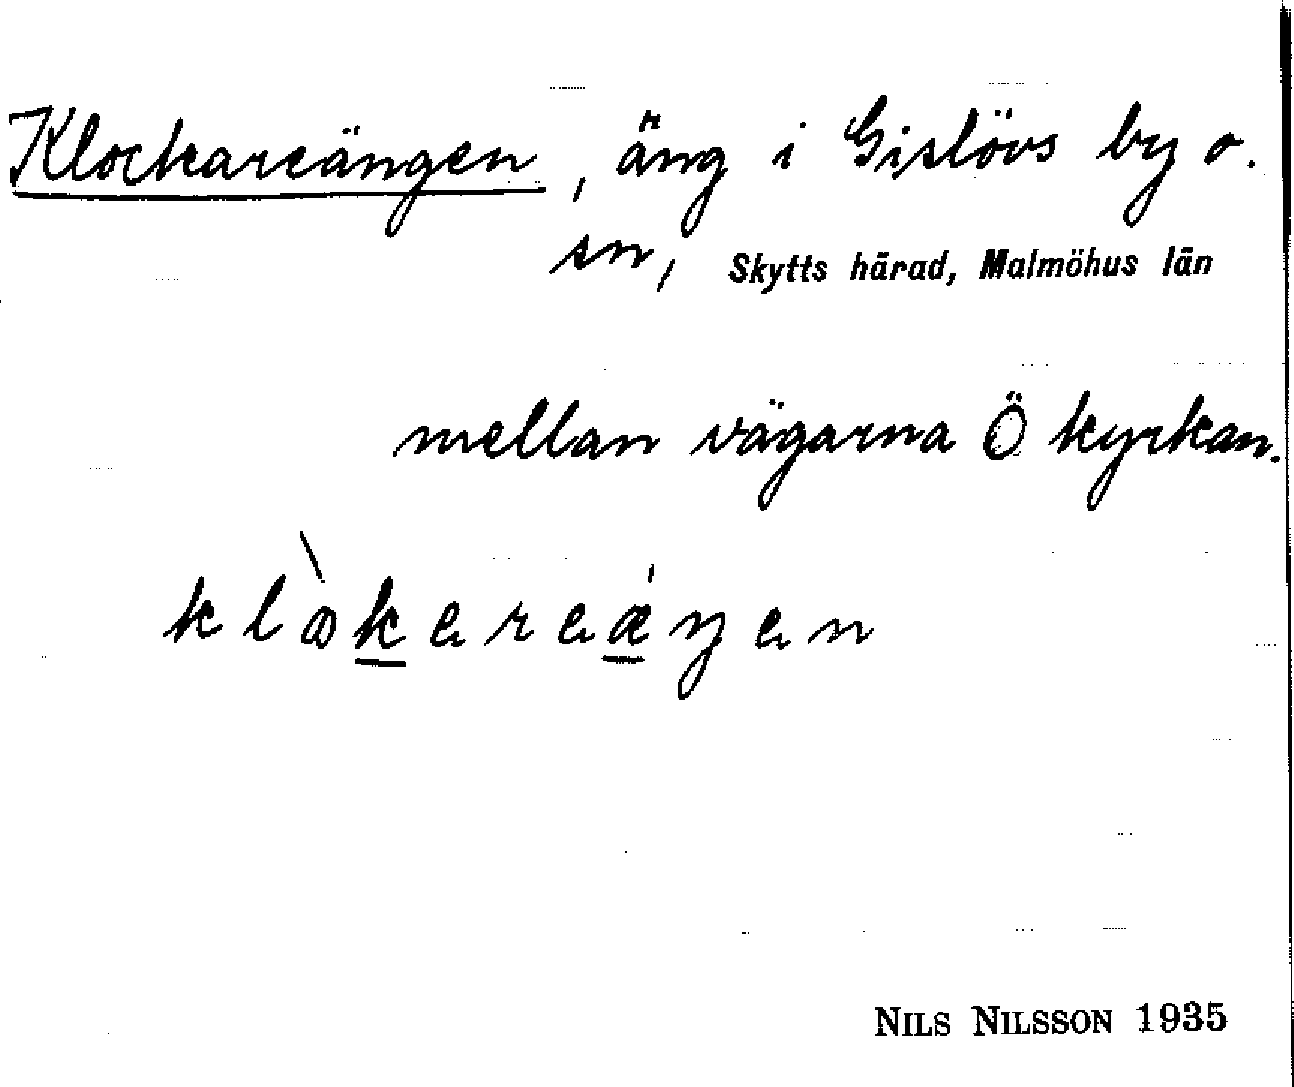 Klockareängen, äng i Gislövs by o.
sn, Skytts härad, Malmöhus län
mellan vägarna Ö kyrkan.
klàkereæ̀ŋen
NILS NILSSON 1935